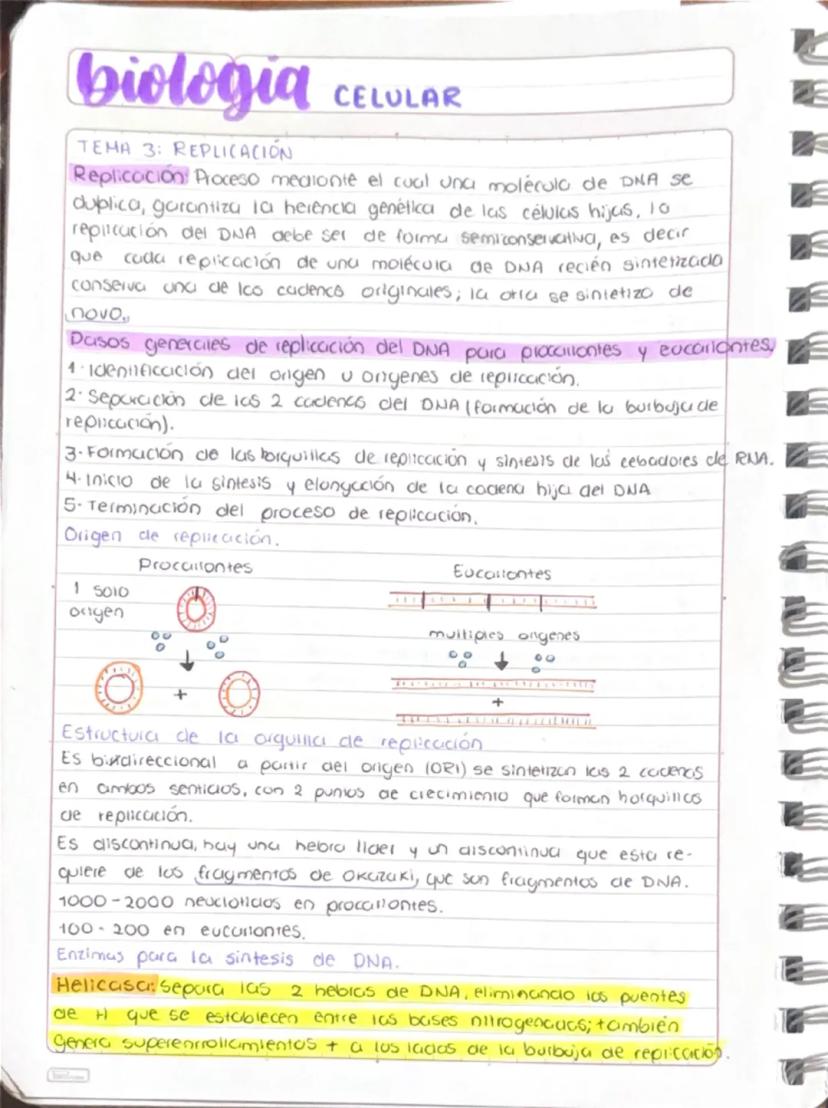 biología CELULAR
TEMA 3: REPLICACIÓN
Replicación: Proceso mediante el cual una molécula de DNA se
duplica, garantiza la herencia genética de las células hijas, la
replicación del DNA debe ser de forma semiconservativa, es decir
que cada replicación de una molécula de DNA recién sintetizada
conserva una de las cadenas originales; la otra se sintetiza de
novo.
Pasos generales de replicación del DNA para procariontes y eucariontes.
1. Identificación del origen u orígenes de replicación.
2. Separación de las 2 cadenas del DNA (formación de la burbuja de
replicación).
3. Formación de las horquillas de replicación y síntesis de los cebadores de RNA.
4. Inicio de la síntesis y elongación de la cadena hija del DNA
5. Terminación del proceso de replicación.
Origen de replicación.
Procariontes Eucariontes
1 solo
origen
multiples origenes
+
+
Estructura de la orquilla de replicación
Es bidireccional a partir del origen (ORI) se sintetizan las 2 cadenas
en ambos sentidos, con 2 puntos de crecimiento que forman horquillas
de replicación.
Es discontinua, hay una hebra lider y un discontinua que esta re-
quiere de los fragmentos de Okazaki, que son fragmentos de DNA.
1000-2000 neuclotidos en procariontes.
100-200 en eucariontes.
Enzimas para la sintesis de DNA.
Helicasa: Separa las 2 hebras de DNA, eliminando los puentes
de H que se establecen entre las bases nitrogenadas; también
genera superenrrollamientos + a los lados de la burbuja de replicación.